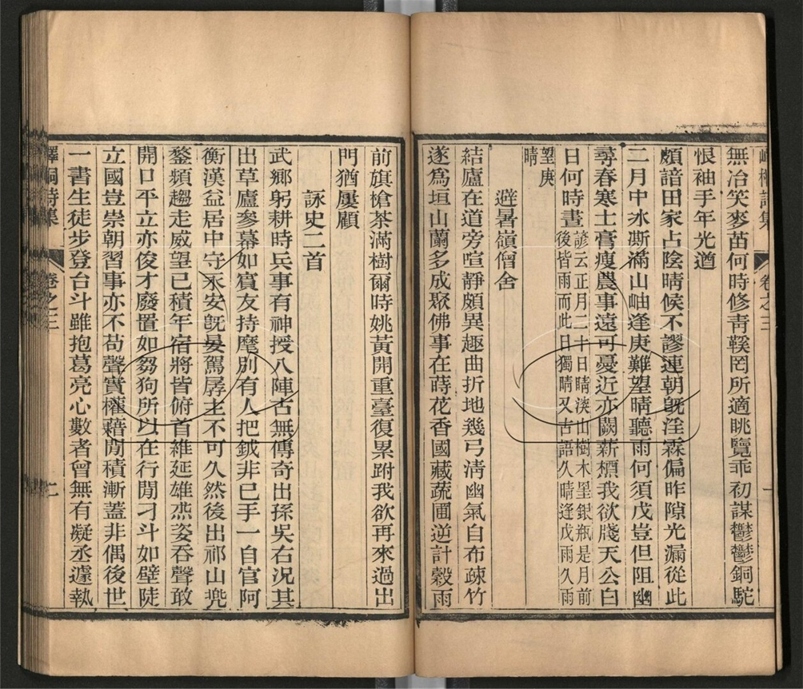 無冶笑麥苗何時修靑鞵罔所適眺覽乖初謀鬱鬱銅駝
恨袖手年光遒
頗諳田家占陰晴候不謬連朝旣淫霖偏昨隙光漏從此
二月中氷澌滿山岫逢庚難望晴聽雨何須戊豈但阻幽
尋春寒士膏瘦農事遠可憂近亦闕薪槱我欲牋天公白
日何時晝諺云正月二十日晴淡山樹木罣銀瓶是月前
後皆雨而此日獨晴又古語久晴逢戊雨久雨
望庚
晴
避暑嶺僧舍
結廬在道旁喧靜頗異趣曲折地幾弓清幽氣自布疎竹
遂爲垣山蘭多成聚佛事在蒔花香國藏蔬圃逆計穀雨
卷之三
前旗槍茶滿樹爾時姚黃開重臺復累跗我欲再來過出
門猶屢顧
詠史二首
武鄉躬耕時兵事有神授八陣古無傳奇出孫吳右況其
出草廬參幕如賓友持麾別有人把鉞非已手一自官阿
衡漢益居中守永安旣晏駕孱主不可久然後出祁山兜
鍪頻趨走威望已積年宿將皆俯首維延雄烝姿吞聲敢
開口平立亦俊才廢置如芻狗所以在行閒刁斗如壁陡
立國豈崇朝習事亦不苟聲實權藉閒積漸蓋非偶後世
一書生徒步登台斗雖抱葛亮心數者曾無有凝丞遽執
嶧桐詩集
卷之三